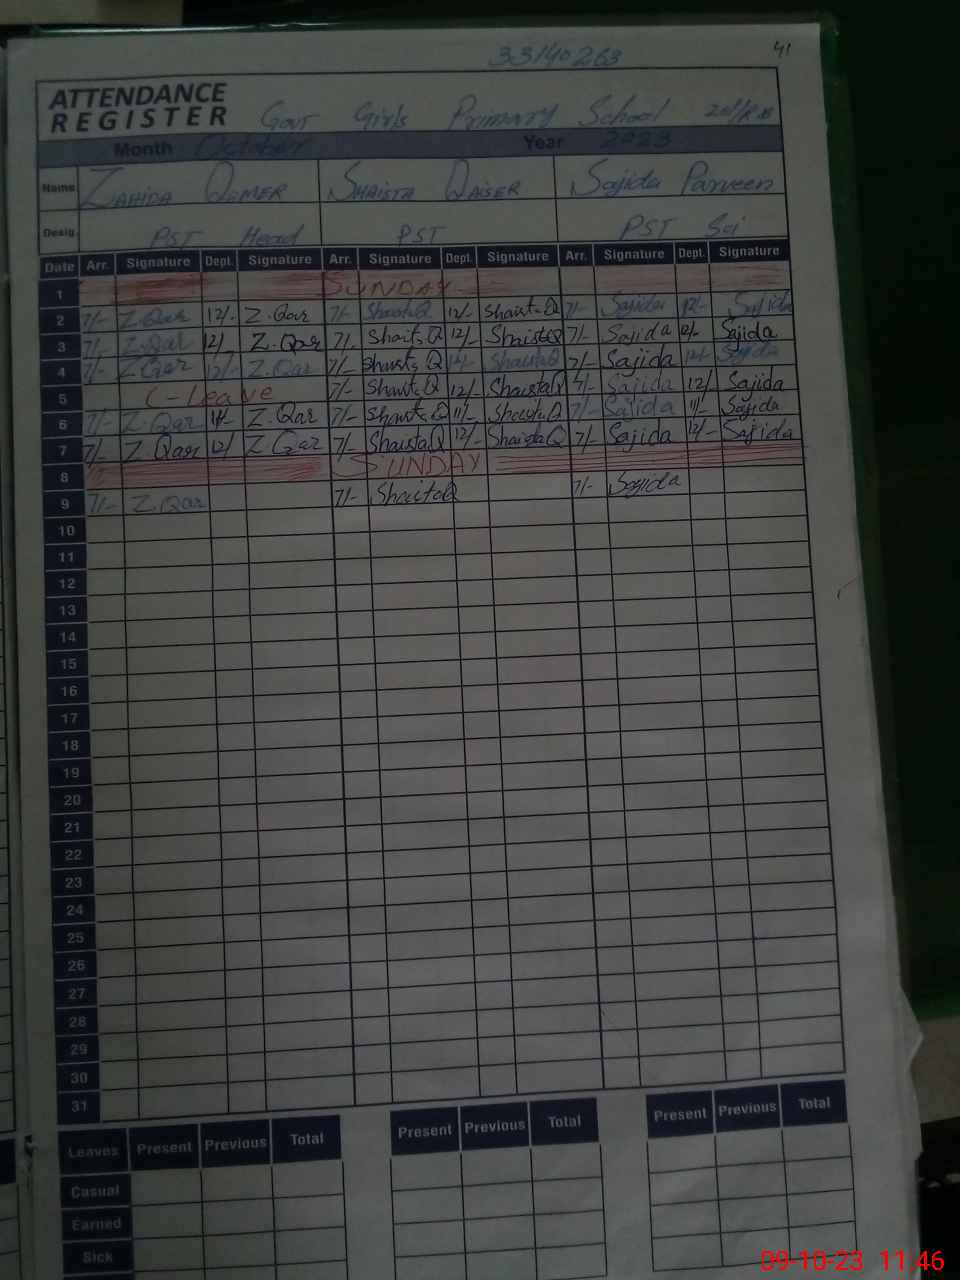 41
33140263
ATTENDANCE REGISTER
Govt Girls Primary School
Month October Year 2023
Name Zahida Qamer Shaista Qaiser Sajida Parveen
Desig. PST Head PST PST Sci
Date Arr. Signature Dept. Signature Arr. Signature Dept. Signature Arr. Signature Dept. Signature
1 SUNDAY
2 7/- Z.Qar 12/- Z.Qar 7/- ShaistaQ 12/- ShaistaQ 7/- Sajida 12/- Sajida
3 7/- Z.Qar 12/ Z.Qar 7/. Shaista Q 12/- ShaistaQ 7/- Sajida 12/- Sajida
4 7/- Z.Qar 12/- Z.Qar 7/- Shaista Q 12/- ShaistaQ 7/- Sajida 12/- Sajida
5 C-Leave 7/- Shaista Q 12/- ShaistaQ 7/- Sajida 12/- Sajida
6 7/- Z.Qar 11/- Z.Qar 7/- Shaista Q 11/- ShaistaQ 7/- Sajida 11/- Sajida
7 7/- Z.Qar 12/ Z.Qar 7/- ShaistaQ 12/- ShaistaQ 7/- Sajida 12/- Sajida
8 SUNDAY
9 7/- Z.Qar 7/- ShaistaQ 7/- Sajida
10
11
12
13
14
15
16
17
18
19
20
21
22
23
24
25
26
27
28
29
30
31
Leaves Present Previous Total Present Previous Total Present Previous Total
Casual
Earned
Sick
09-10-23 11:46